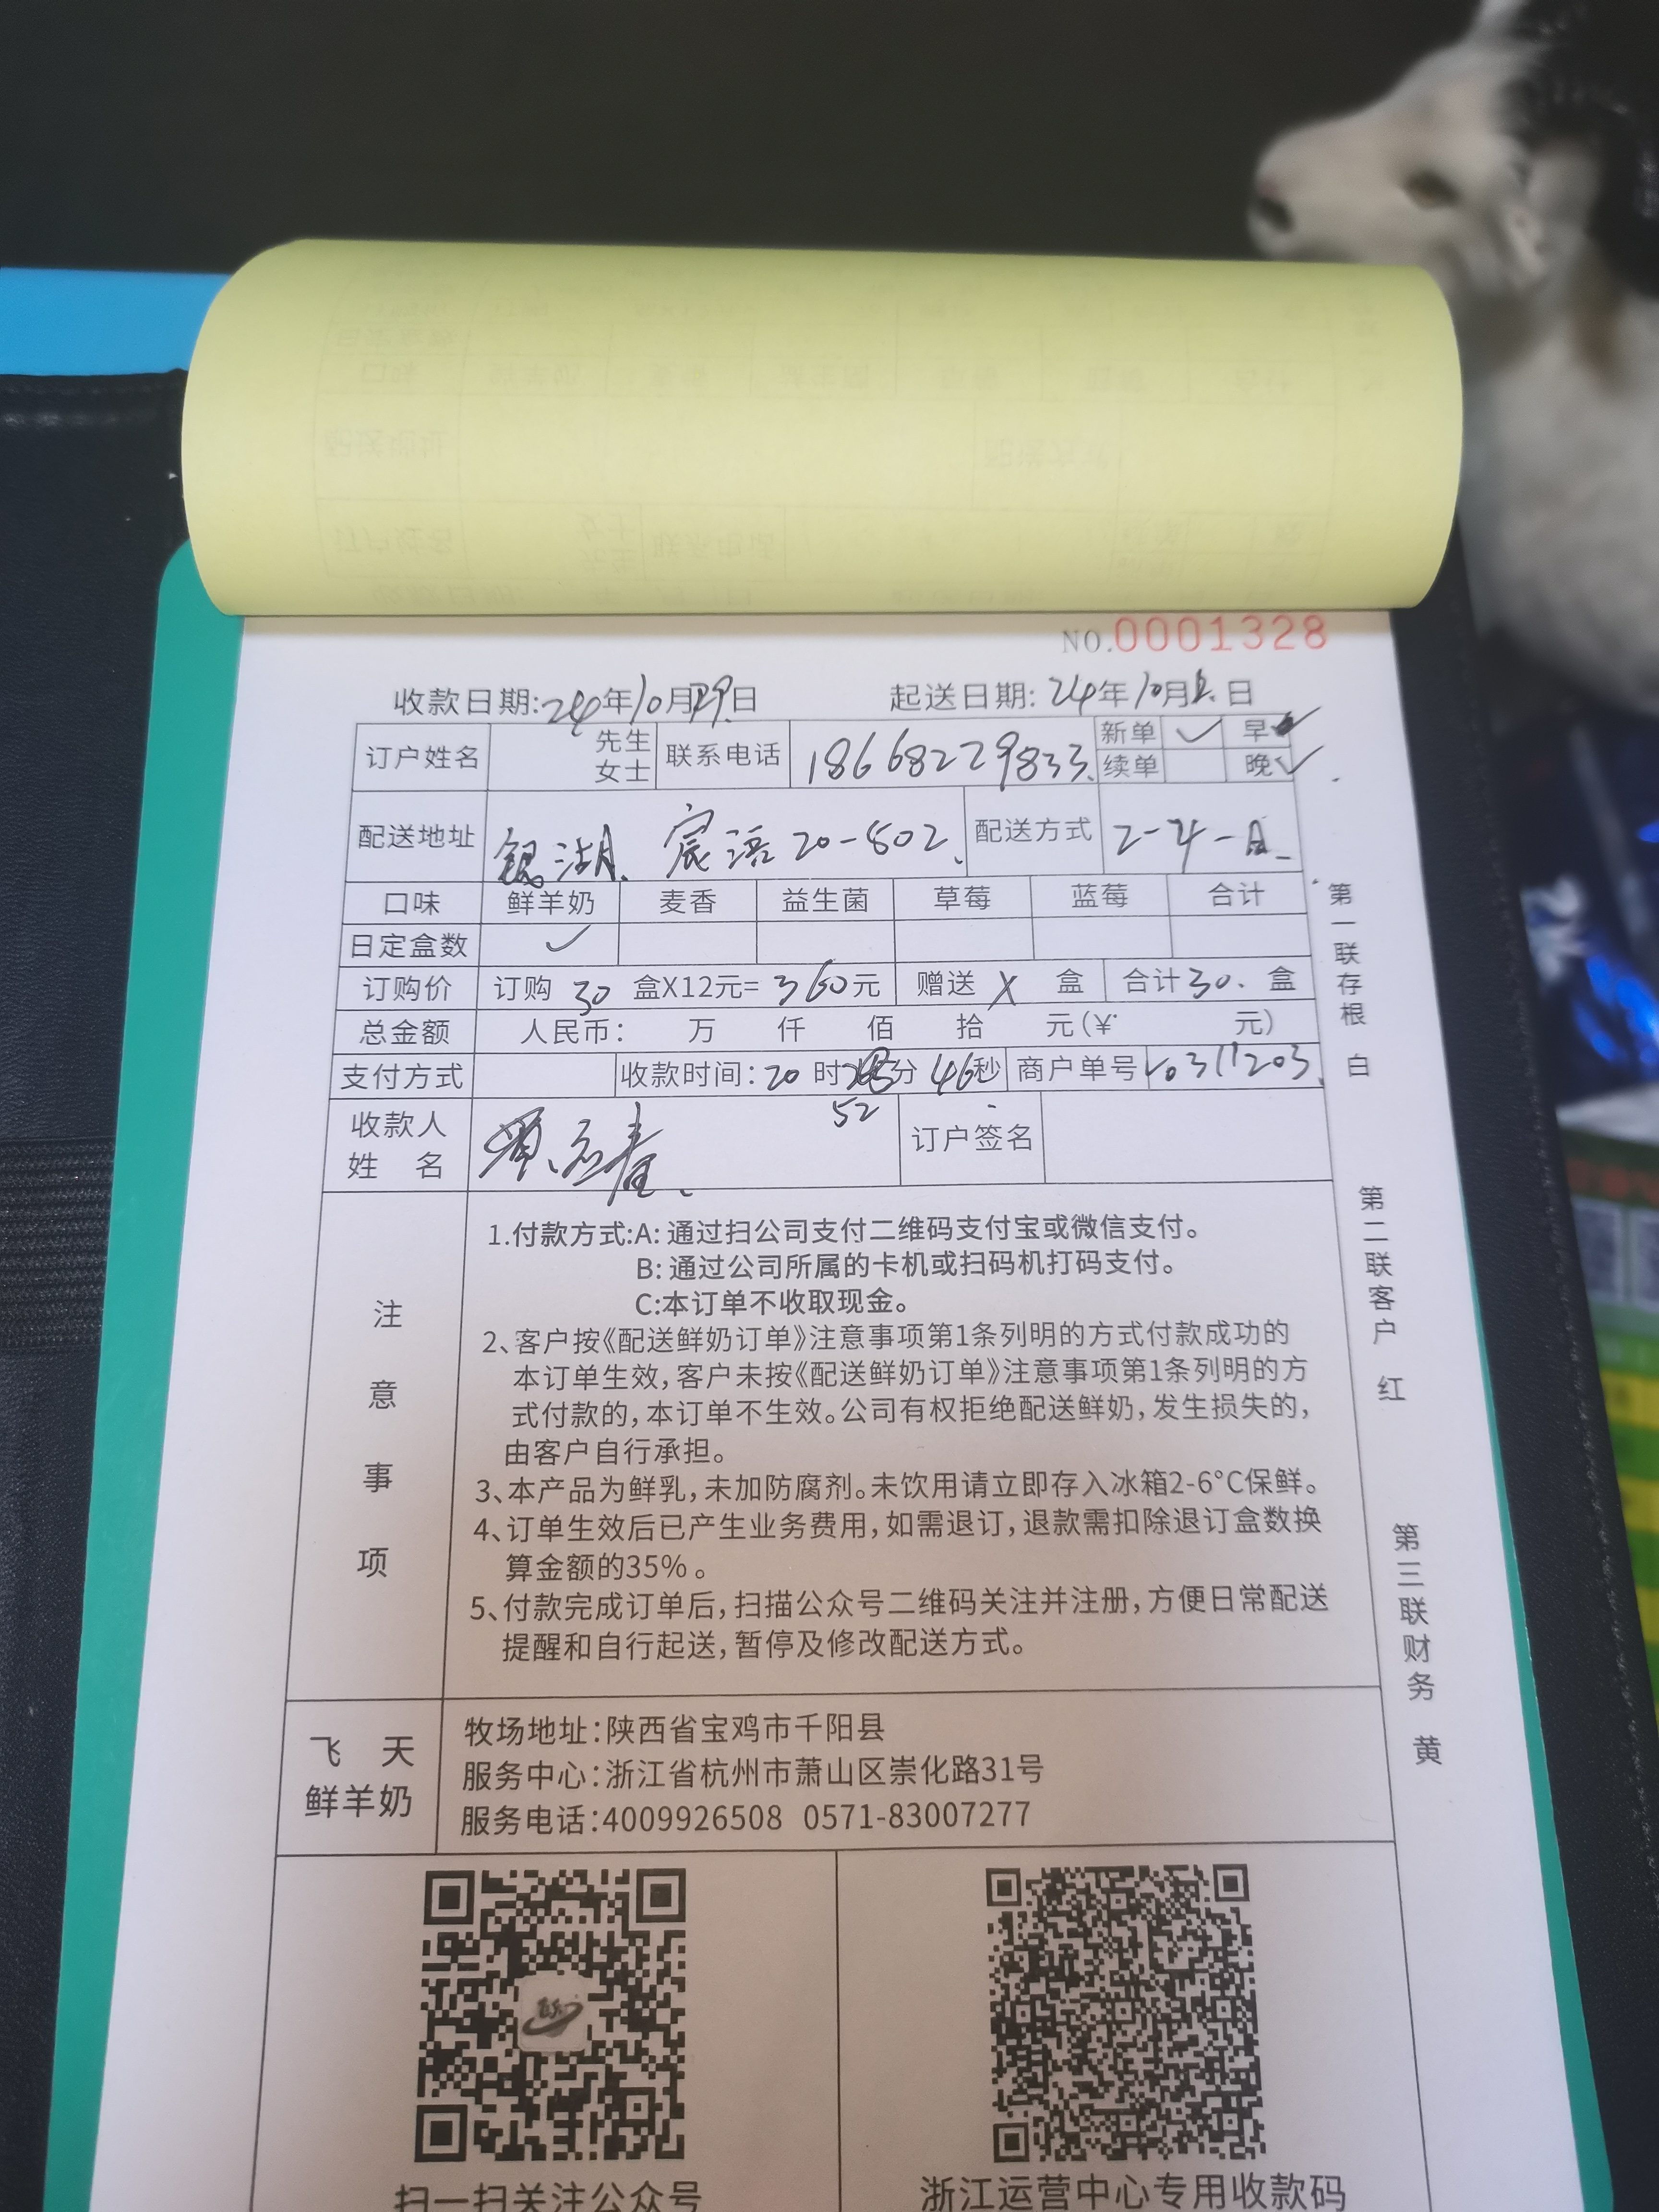 NO.0001328
收款日期:24年10月29日 起送日期: 24年10月 日
订户姓名 先生 女士 联系电话 18668229833 新单 ✓ 早
续单 晚✓
配送地址 湖 宸语 20-802 配送方式 2-4-A
口味 鲜羊奶 麦香 益生菌 草莓 蓝莓 合计
日定盒数 ✓
订购价 订购 30 盒X12元= 360元 赠送 X 盒 合计 30. 盒
总金额 人民币: 万 仟 佰 拾 元(¥ 元)
支付方式 收款时间: 20 时 分 46秒 商户单号 10311203
52
收款人 姓 名 春 订户签名
注意事项
1.付款方式:A: 通过扫公司支付二维码支付宝或微信支付。
B: 通过公司所属的卡机或扫码机打码支付。
C:本订单不收取现金。
2、客户按《配送鲜奶订单》注意事项第1条列明的方式付款成功的
本订单生效,客户未按《配送鲜奶订单》注意事项第1条列明的方
式付款的,本订单不生效。公司有权拒绝配送鲜奶,发生损失的,
由客户自行承担。
3、本产品为鲜乳,未加防腐剂。未饮用请立即存入冰箱2-6°C保鲜。
4、订单生效后已产生业务费用,如需退订,退款需扣除退订盒数换
算金额的35%。
5、付款完成订单后,扫描公众号二维码关注并注册,方便日常配送
提醒和自行起送,暂停及修改配送方式。
飞 天
鲜羊奶
牧场地址:陕西省宝鸡市千阳县
服务中心:浙江省杭州市萧山区崇化路31号
服务电话:4009926508 0571-83007277
扫一扫关注公众号
浙江运营中心专用收款码
第一联存根 白
第二联客户 红
第三联财务 黄